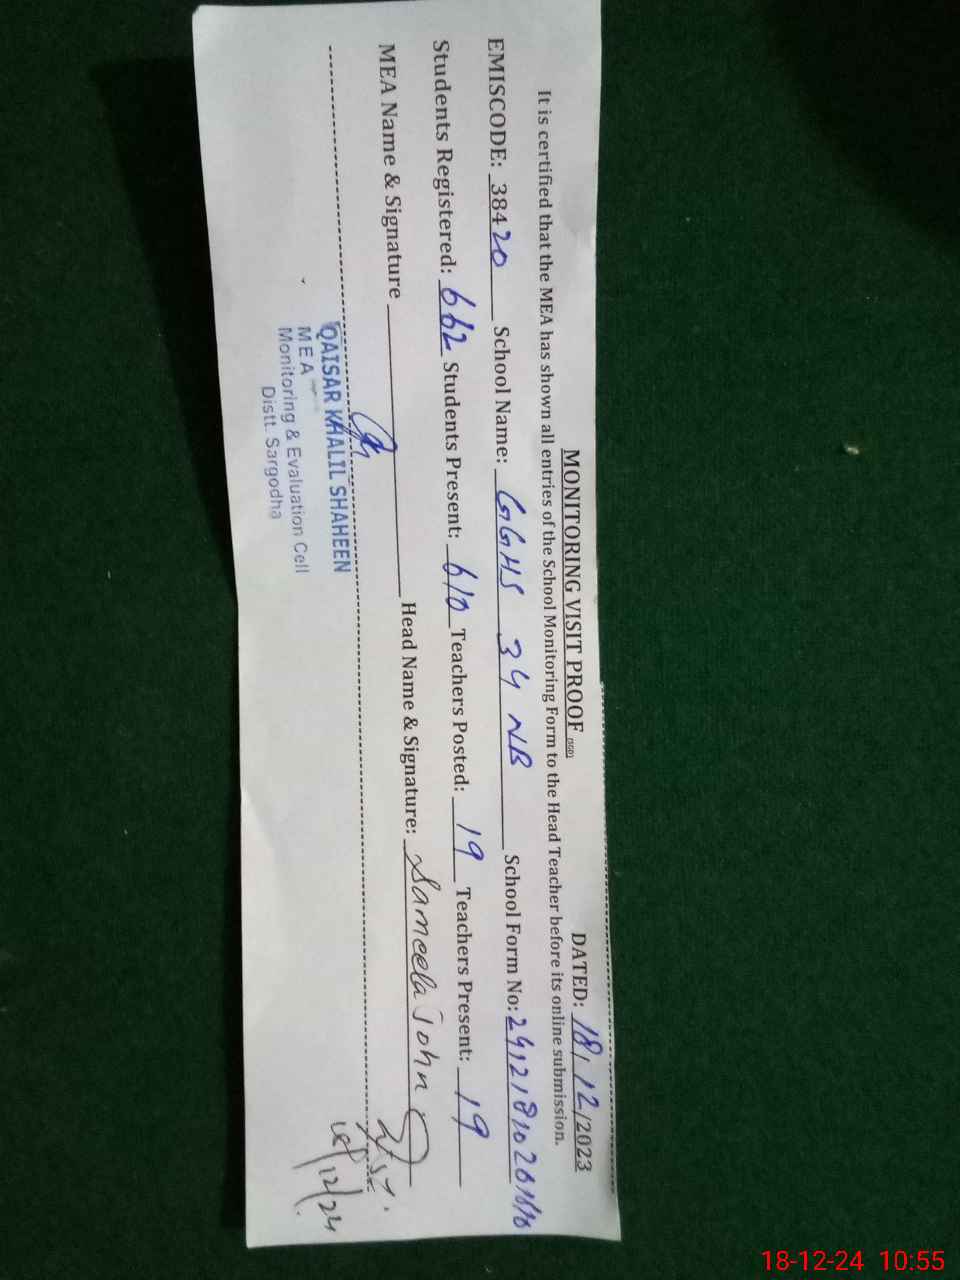 MONITORING VISIT PROOF (SGD) DATED: 18/12/2023
It is certified that the MEA has shown all entries of the School Monitoring Form to the Head Teacher before its online submission.
EMISCODE: 38420 School Name: GGHS 34 NB School Form No:
Students Registered: 662 Students Present: 610 Teachers Posted: 19 Teachers Present: 19
MEA Name & Signature Head Name & Signature: Sameela John
18/12/24
QAISAR KHALIL SHAHEEN
MEA
Monitoring & Evaluation Cell
Distt. Sargodha
18-12-24 10:55